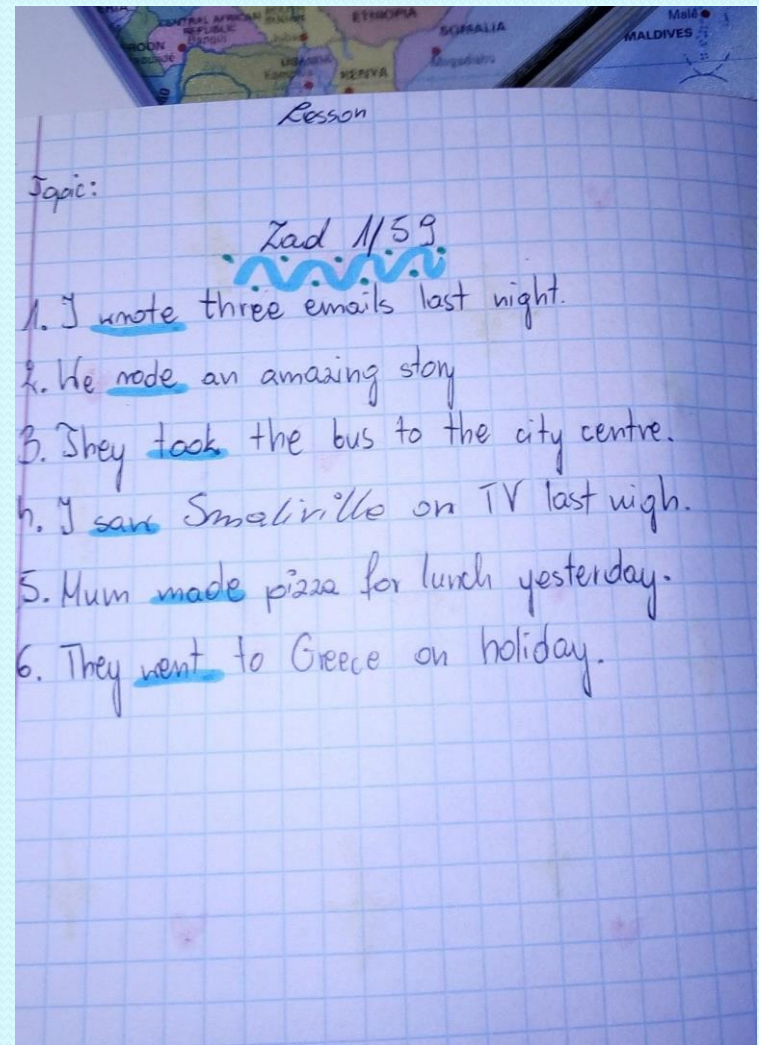 CENTRAL AFRICAN
REPUBLIC
Bangui
ETHIOPIA
SOMALIA
Mogadishu
KENYA
UGANDA
Malé
MALDIVES
Lesson
Topic:
Zad 1/59
1. I wrote three emails last night.
2. We rode an amazing story
3. They took the bus to the city centre.
4. I saw Smaliville on TV last nigh.
5. Mum made pizza for lunch yesterday.
6. They went to Greece on holiday.